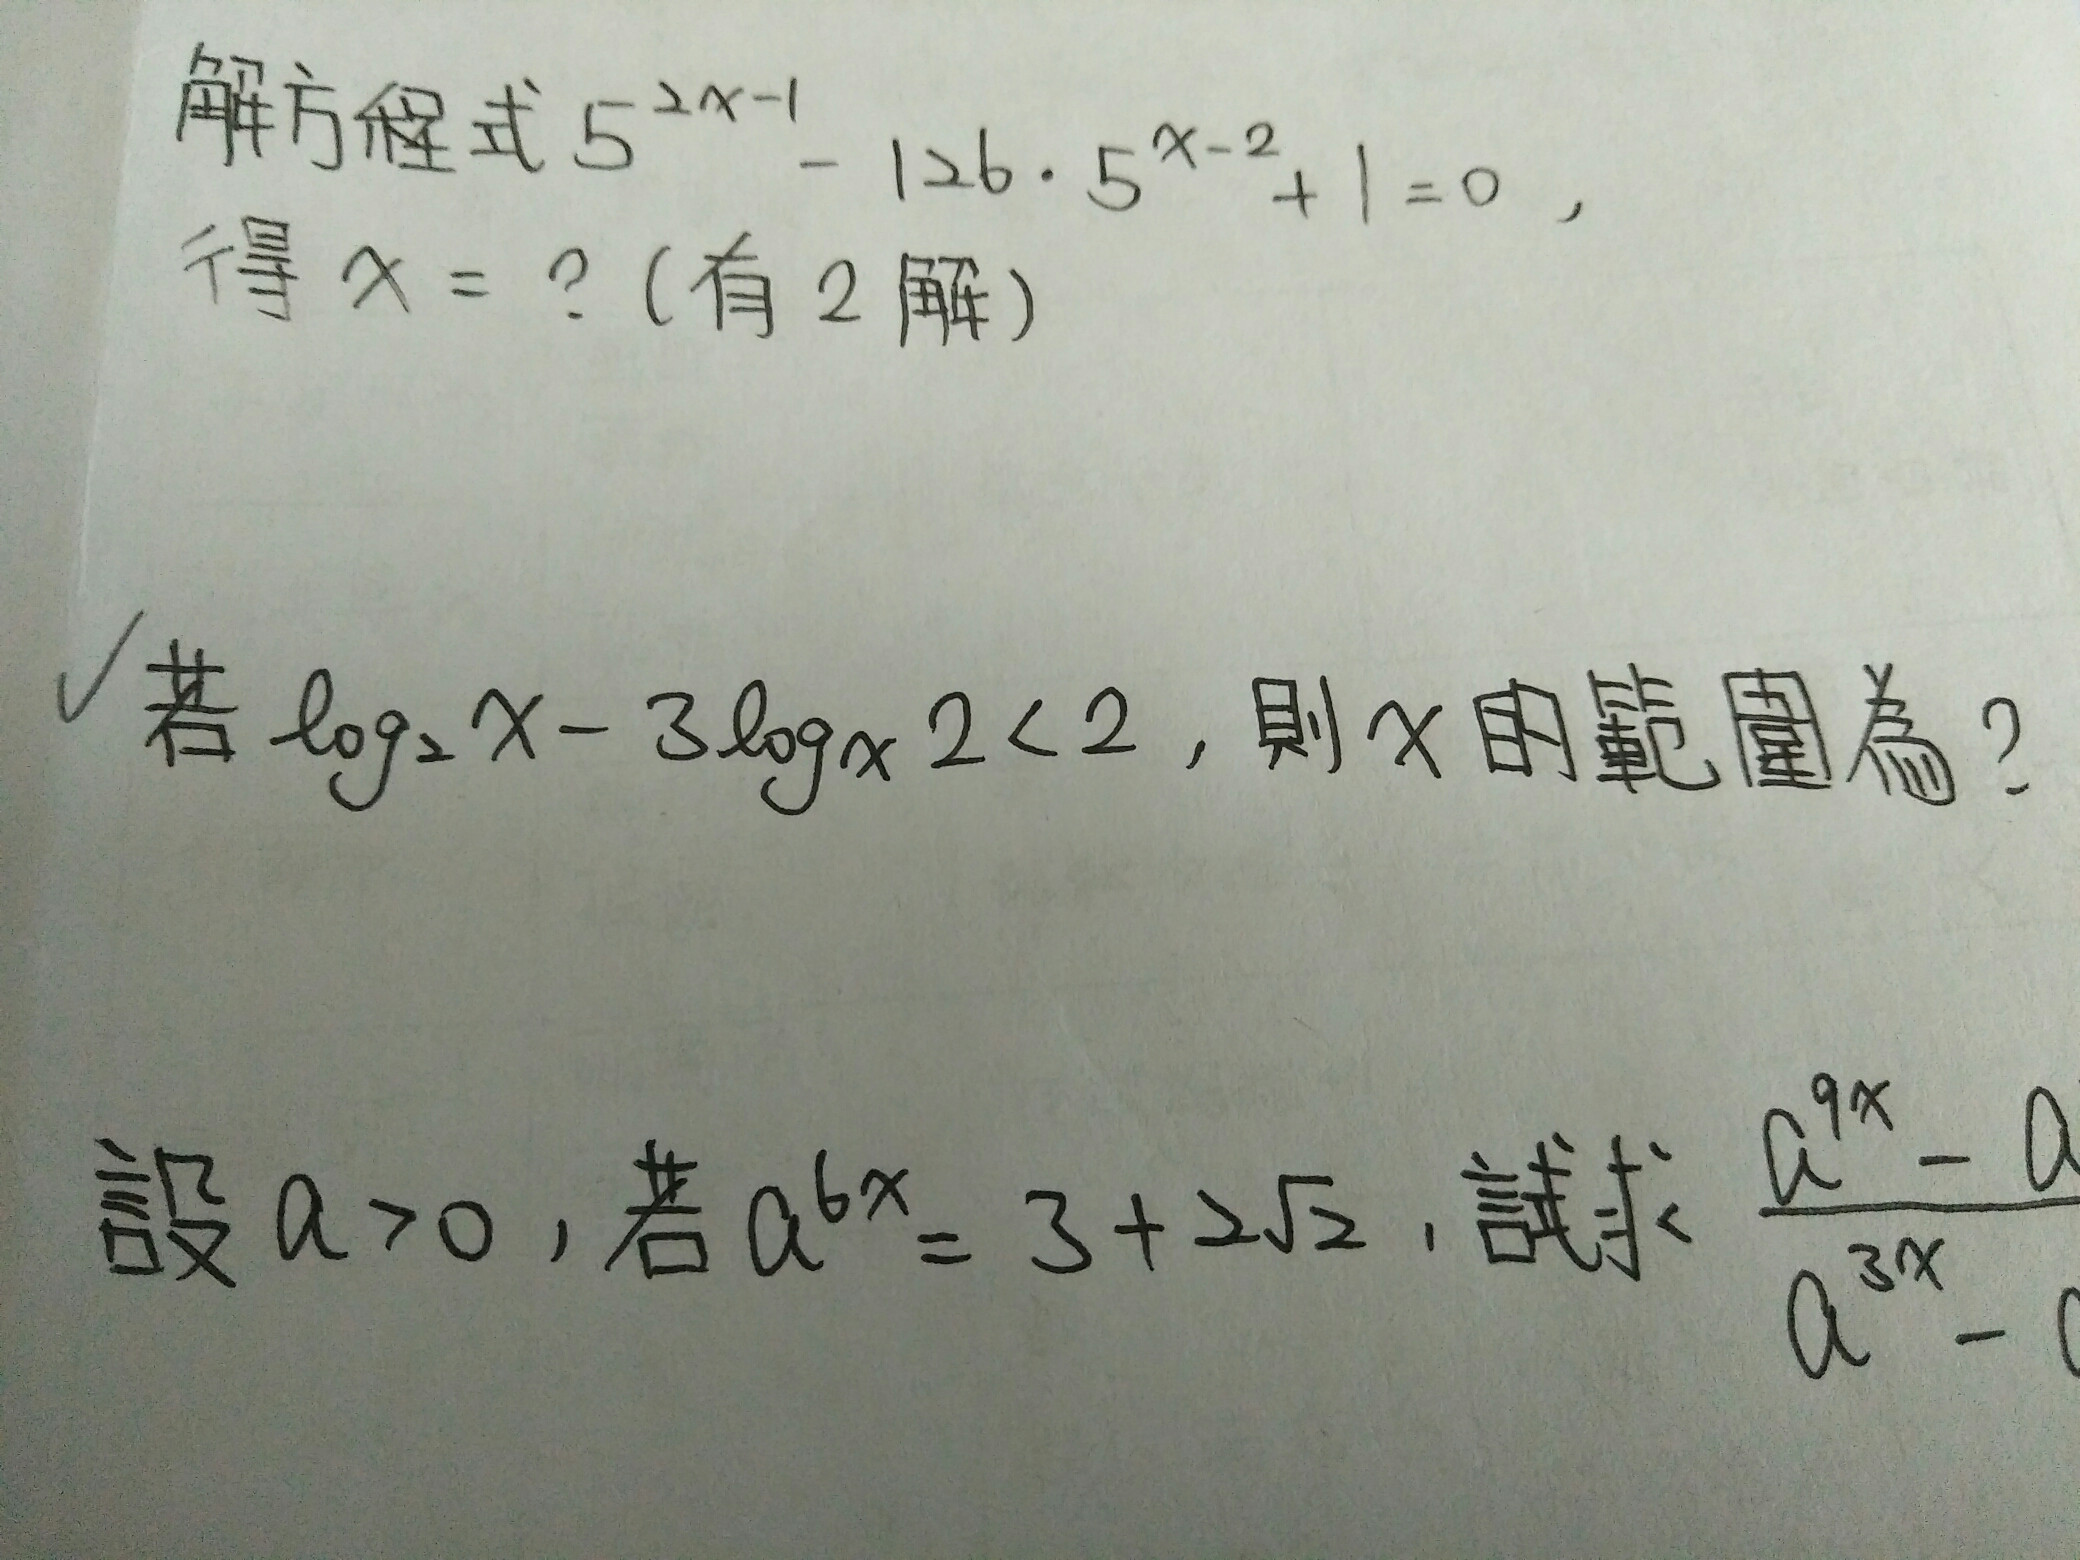 解方程式 5^{2x-1} - 126 · 5^{x-2} + 1 = 0 ,
得 x = ? (有 2 解)
✓ 若 log₂ x - 3 logₓ 2 < 2 , 則 x 的範圍為?
設 a > 0 , 若 a^{6x} = 3 + 2√2 , 試求 \frac{a^{9x} - a}{a^{3x} -}